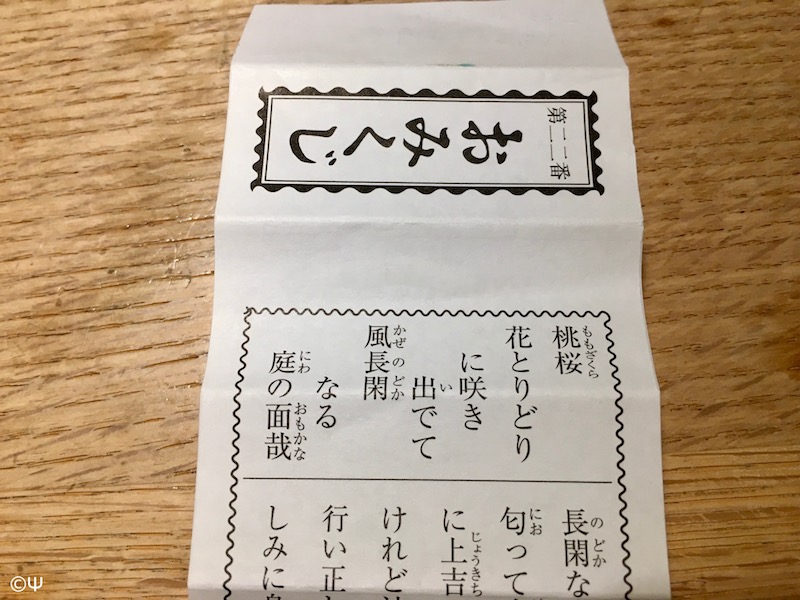 第二二番
おみくじ
ももざくら
桃桜
花とりどり
に咲き
い
出でて
かぜ のどか
風長閑
なる
にわ おもかな
庭の面哉
のどか
長閑な
にお
匂って
じょうきち
に上吉
けれど
行い正
しみに
©Ψ